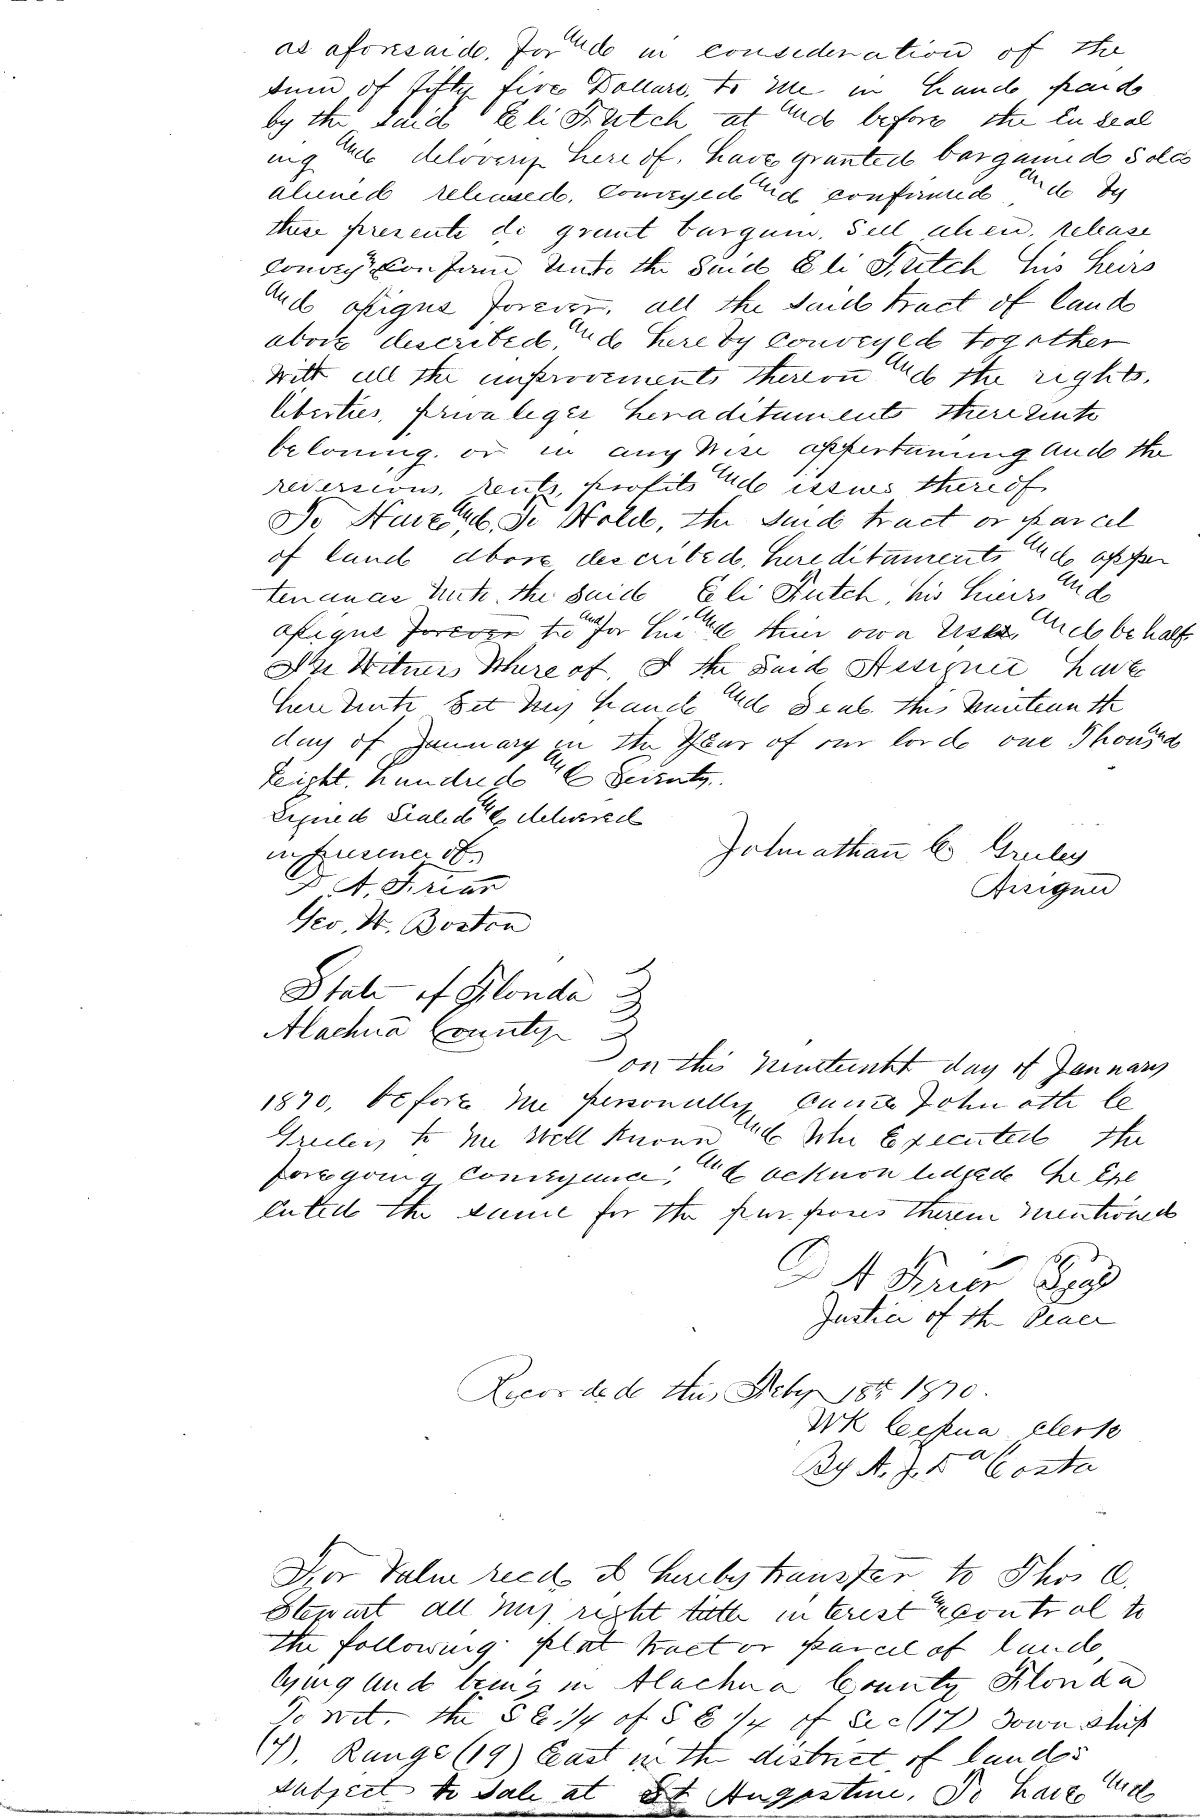 as aforesaid. for and in consideration of the
sum of fifty five Dollars, to me in hand paid
by the said Eli Futch at and before the Enseal
ing and delivery hereof. have granted bargained Sold
aliened released. conveyed and confirmed and by
these presents do grant bargain. Sell alien. release
convey & confirm unto the said Eli Futch his heirs
and assigns forever. all the said tract of land
above described, and hereby conveyed together
with all the improvements thereon and the rights.
liberties, privaleges heraditaments thereunto
beloning. or in any wise appertaining and the
reversions, rents, profits and issues thereof
To Have and To Hold, the said tract or parcel
of land above described, hereditaments and apper
tenances unto the said Eli Futch, his heirs and
assigns forever to and for his and thier own Uses, and behalf
In Witness Whereof, I the said Assignee have
hereunto set my hand and Seal this Ninteenth
day of January in the Year of our lord one Thousand
Eight. hundred and Seventy.
Signed Sealed and delivered
in presence of.
D. A. Friar
Geo. W. Boston
Johnathan C Greeley
Assignee
State of Florida
Alachua County
on this Nineteenht day of January
1870, before me personally came Johnoth C
Greeley to me Well Known and Who Executed the
foregoing conveyance; and acknowledged he Exe
cuted the same for the purposes therein mentioned
D A Frier
Justice of the Peace
Recorded this Feby 18th 1870.
WK Cessna Clerk
By A. J. DaCosta
For Value recd, I hereby transfer to Thos C.
Stewart all my right title interest & control to
the following plat tract or parcel of land,
lying and being in Alachua County Florida
To wit. the S E 1/4 of S E 1/4 of Sec (17) Township
(7), Range (19) East in the district of lands
subject to sale at St Augustine. To have and